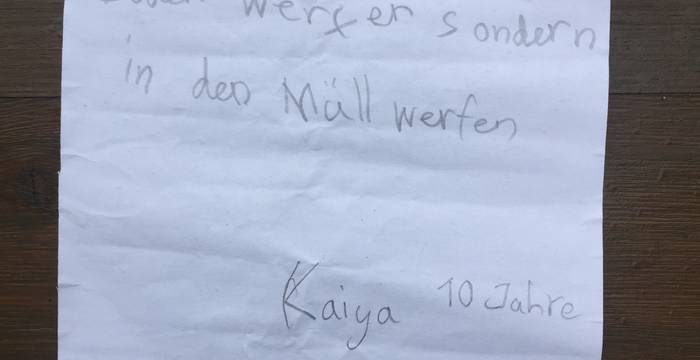 werfen sondern
in den Müll werfen
Kaiya 10 Jahre